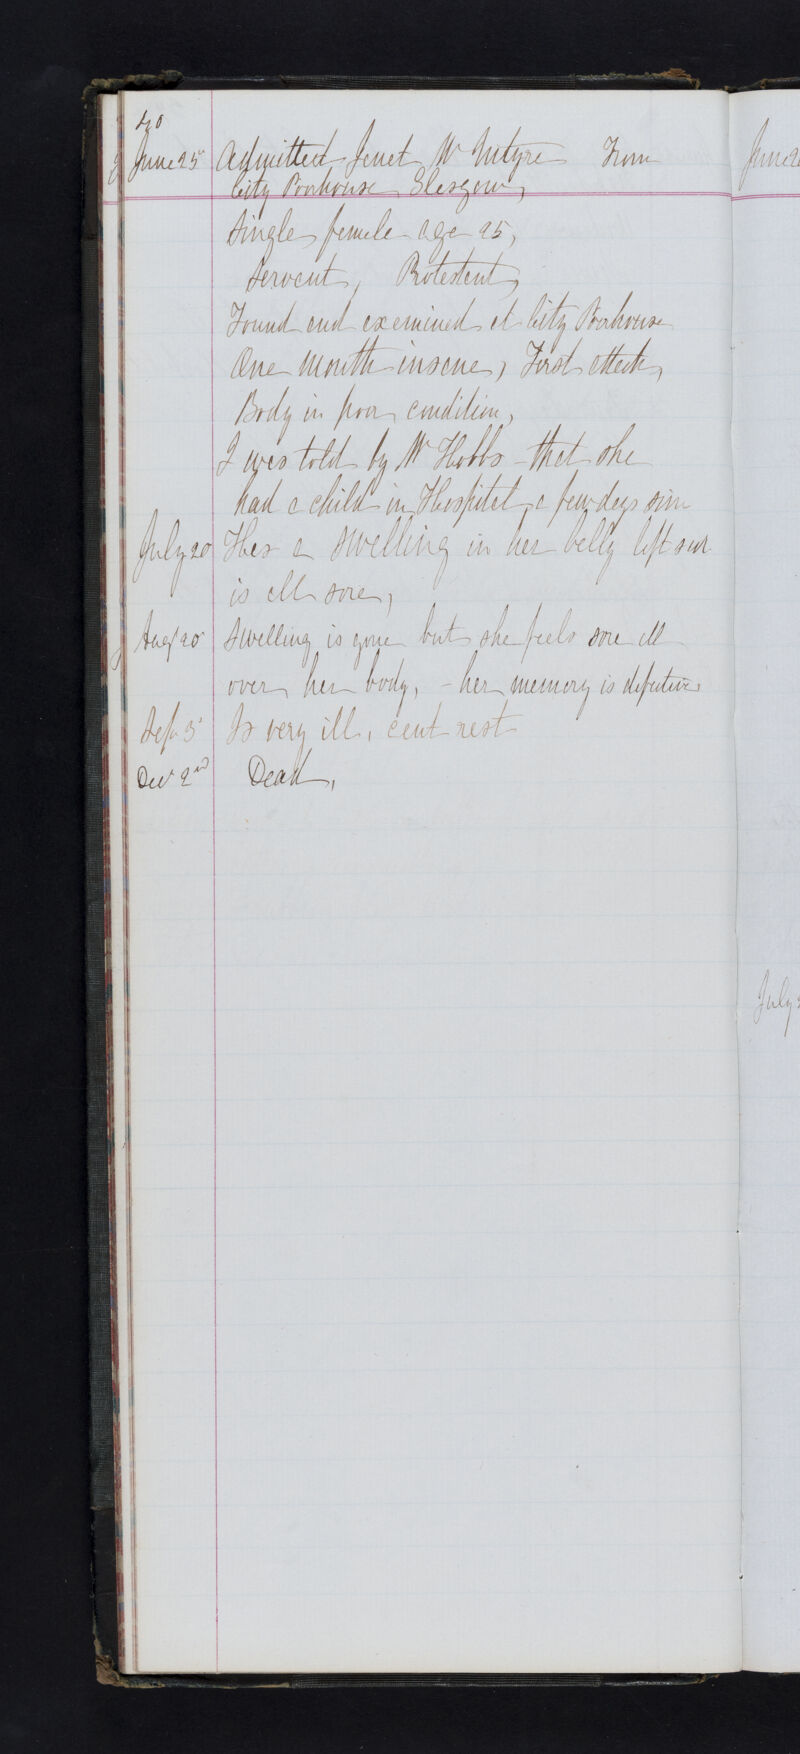 40
June 25 Admitted Janet McIntyre From
City Poorhouse Glasgow,
Single female age 25,
Servant, Protestant,
Found and examined at City Poorhouse
One Month insane, First attack,
Body in poor condition,
I was told by Mr Hobbs - that she
had a child in Hospital a few days sinc
July 20 Has a swelling in her belly left side
is all sore,
Aug 20 Swelling is gone but she feels sore all
over her body, - her memory is defective
Sep 3 Is very ill, cant rest
Dec 2nd Dead,
June 2
July 2